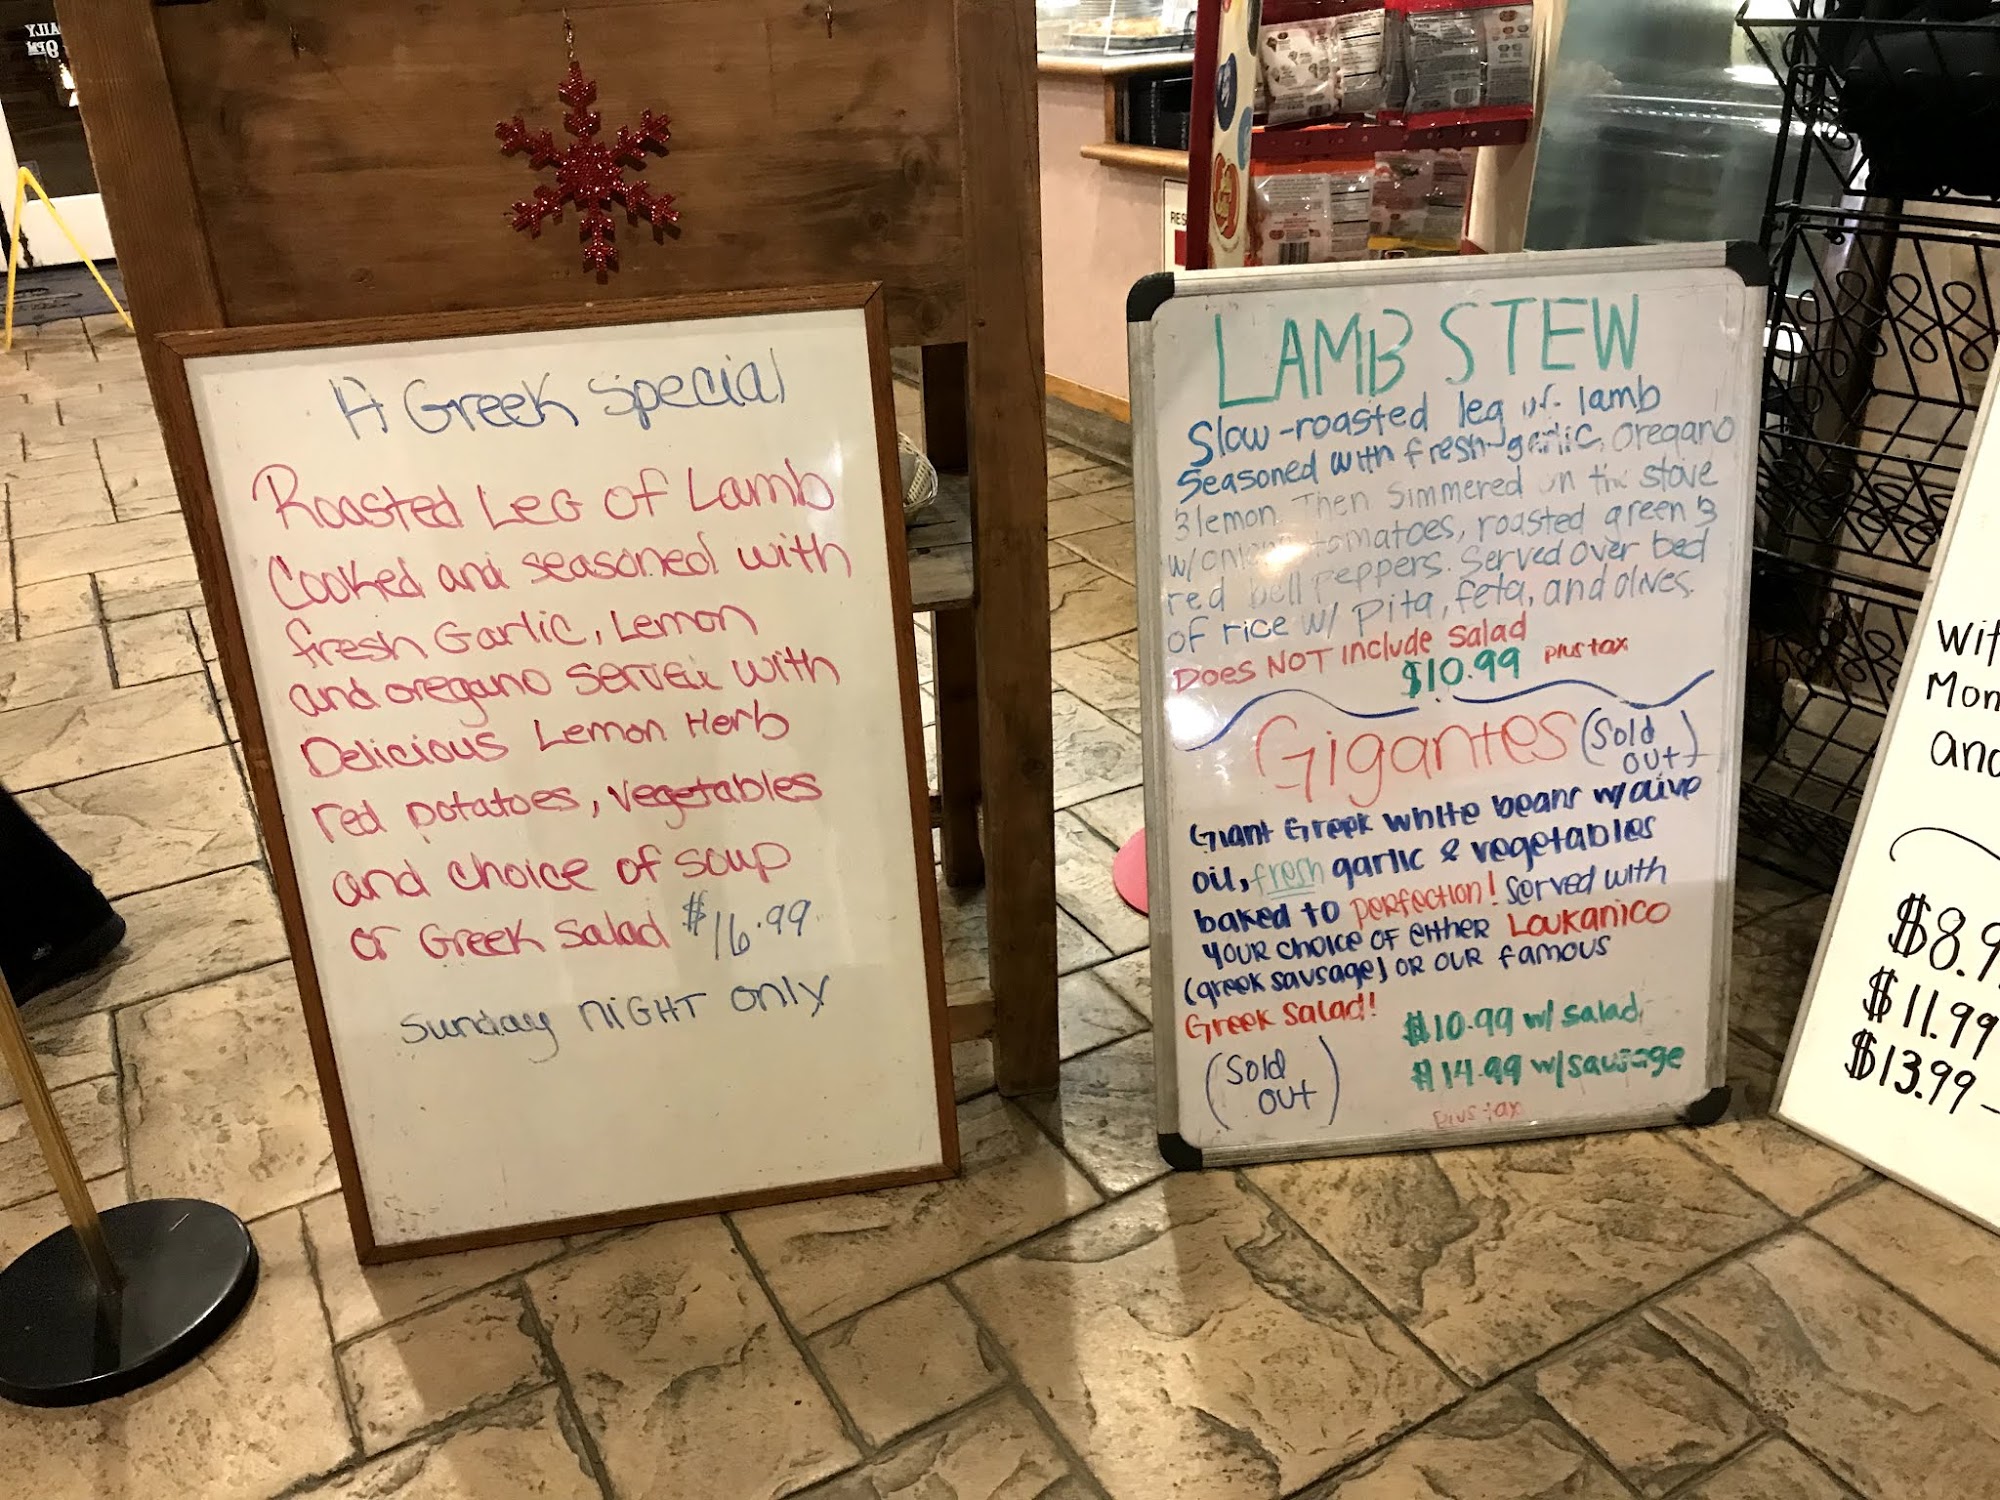 A Greek Special
Roasted Leg of Lamb
Cooked and seasoned with
fresh Garlic, Lemon
and oregano served with
Delicious Lemon Herb
red potatoes, vegetables
and choice of soup
or Greek Salad $16.99
Sunday NIGHT only
LAMB STEW
Slow-roasted leg of lamb
Seasoned with fresh garlic, oregano
& lemon. Then Simmered on the stove
w/ onions, tomatoes, roasted green &
red bell peppers. Served over bed
of rice w/ Pita, feta, and olives.
Does NOT include salad
$10.99 plus tax
Gigantes (Sold
out)
Giant Greek white beans w/ olive
oil, fresh garlic & vegetables
baked to perfection! Served with
your choice of either Loukanico
(greek sausage) or our famous
Greek Salad!
$10.99 w/ salad
(Sold
out)
$14.99 w/ sausage
plus tax
Mon
and
$8.9
$11.99
$13.99